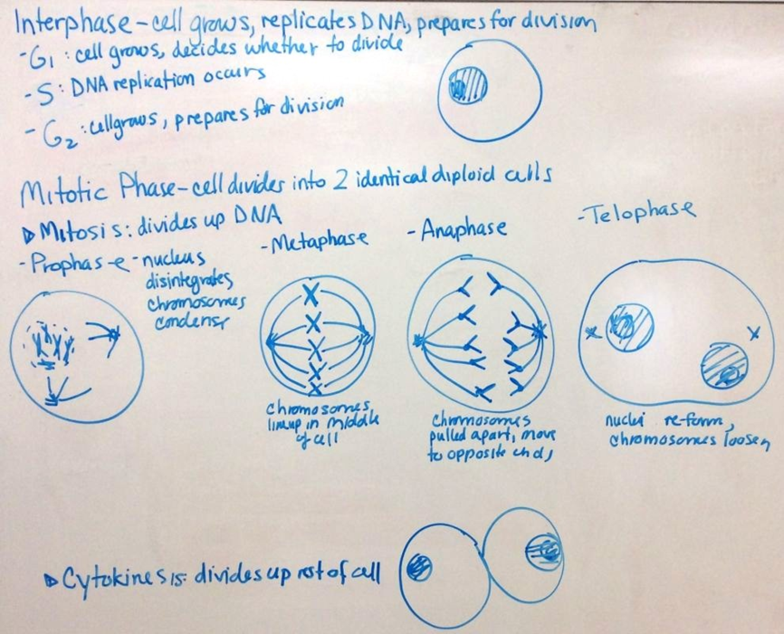 Interphase-cell grows, replicates DNA, prepares for division
-G1: cell grows, decides whether to divide
-S: DNA replication occurs
-G2: cell grows, prepares for division
Mitotic Phase-cell divides into 2 identical diploid cells
▷Mitosis: divides up DNA
-Prophase-nucleus
disintegrates,
chromosomes
condense
-Metaphase
chromosomes
line up in middle
of cell
-Anaphase
chromosomes
pulled apart, move
to opposite ends
-Telophase
nuclei re-form,
chromosomes loosen
▷Cytokinesis: divides up rest of cell